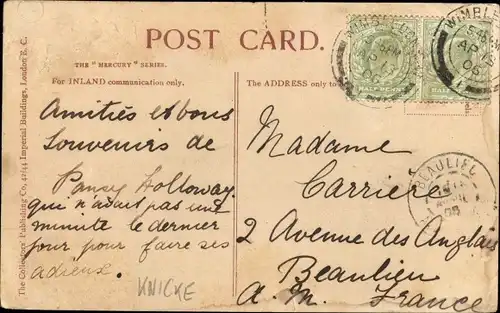 POST CARD.
THE "MERCURY" SERIES.
For INLAND communication only.
The ADDRESS only to
The Collectors' Publishing Co., 42/44 Imperial Buildings, London E.C.
HALF PENNY
HALF PENNY
WIMBLE
5
AP
06
BEAULIEU
Amitiés et bons
Souvenirs de
Pansy Holloway.
qui n'avait pas une
minute le dernier
jour pour faire ses
adieux.
KNICKE
Madame
Carrier
2 Avenue des Anglais
Beaulieu
A. M. France